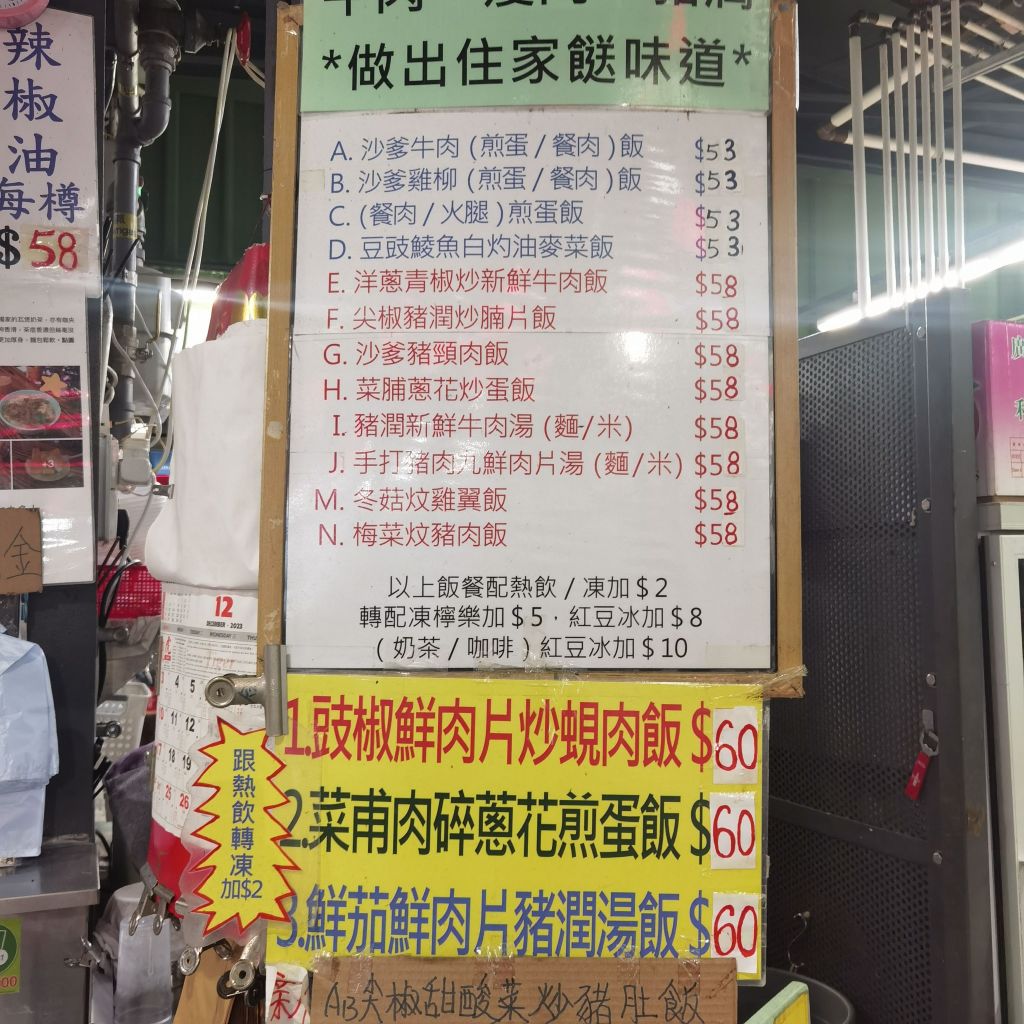 *做出住家餸味道*
A. 沙爹牛肉 (煎蛋 / 餐肉) 飯 $53
B. 沙爹雞柳 (煎蛋 / 餐肉) 飯 $53
C. (餐肉 / 火腿) 煎蛋飯 $53
D. 豆豉鯪魚白灼油麥菜飯 $53
E. 洋蔥青椒炒新鮮牛肉飯 $58
F. 尖椒豬潤炒腩片飯 $58
G. 沙爹豬頸肉飯 $58
H. 菜脯蔥花炒蛋飯 $58
I. 豬潤新鮮牛肉湯 (麵/米) $58
J. 手打豬肉丸鮮肉片湯 (麵/米) $58
M. 冬菇炆雞翼飯 $58
N. 梅菜炆豬肉飯 $58
以上飯餐配熱飲 / 凍加 $2
轉配凍檸樂加 $5 · 紅豆冰加 $8
( 奶茶 / 咖啡 ) 紅豆冰加 $10
1.豉椒鮮肉片炒蜆肉飯 $60
2.菜甫肉碎蔥花煎蛋飯 $60
3.鮮茄鮮肉片豬潤湯飯 $60
AB尖椒甜酸菜炒豬肚飯
跟
熱
飲
轉
凍
加$2
辣
椒
油
每樽
$58
金
12
DECEMBER · 2023
4 5
11 12
18 19
25 26